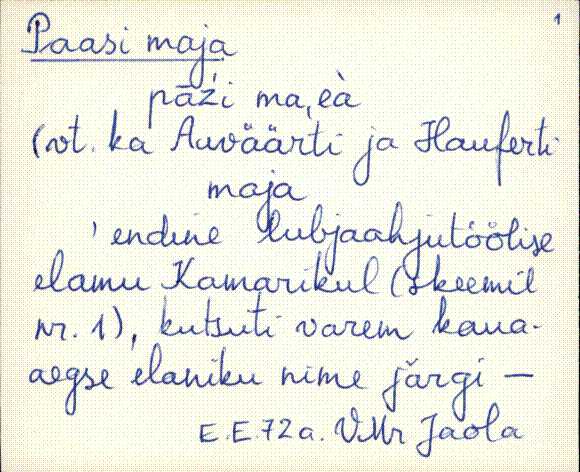 1
Paasi maja
pāźi ma,eà
(vt. ka Auväärti ja Hauferti
maja
' endine lubjaahjutöölise
elamu Kamarikul (skeemil
nr. 1), kutsuti varem kaua-
aegse elaniku nime järgi —
E.E. 72 a. VMr Jaola